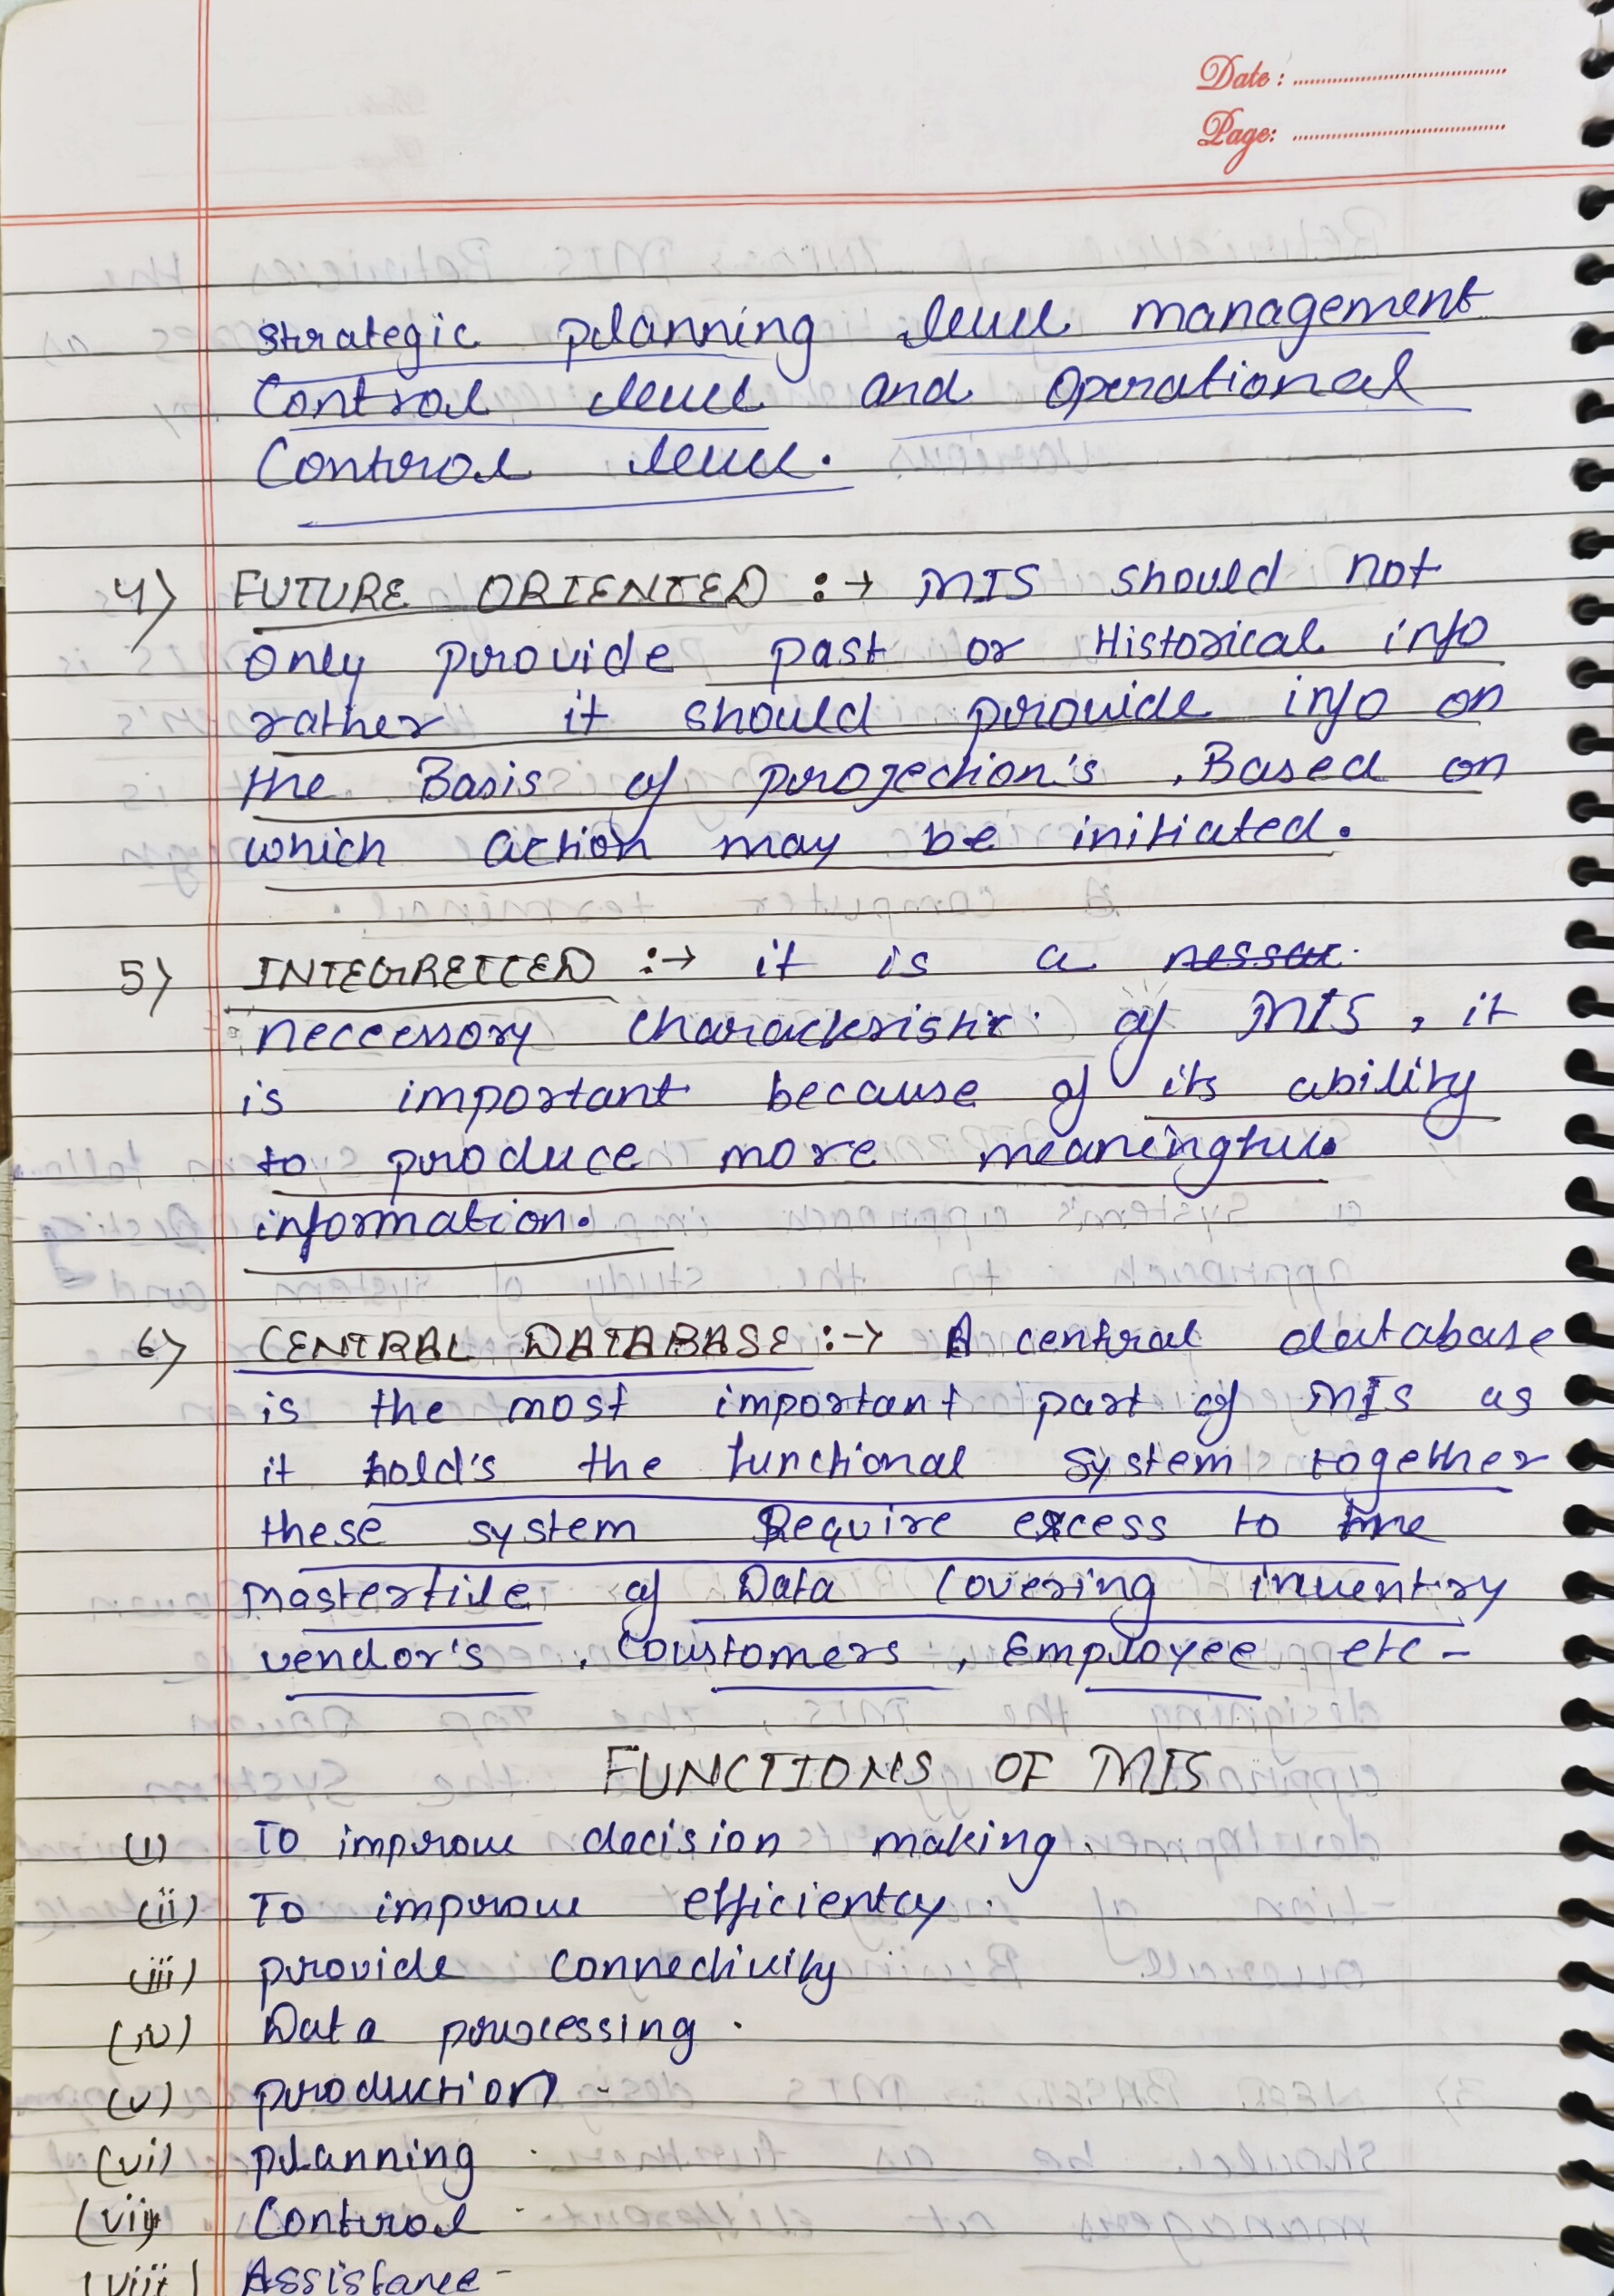 Date :
Page:
strategic planning level management
Control level and operational
Control level.
4) FUTURE ORIENTED :→ MIS should not
only provide past or Historical info
rather it should provide info on
the Basis of projection's , Based on
which action may be initiated.
5) INTEGRETCED :→ it is a nessar
neccessory characteristic of MIS , it
is important because of its ability
to produce more meaningful
information.
6) CENTRAL DATABASE :→ A central database
is the most important part of MIS as
it hold's the functional system together
these system Require excess to the
masterfile of Data Covering inventry
vendor's , Coustomers , Employee etc -
FUNCTIONS OF MIS
(i) To improve decision making.
(ii) To improve efficientcy.
(iii) provide Connectivity
(iv) Data processing .
(v) production -
(vi) planning .
(vii) Control -
(viii) Assistance -